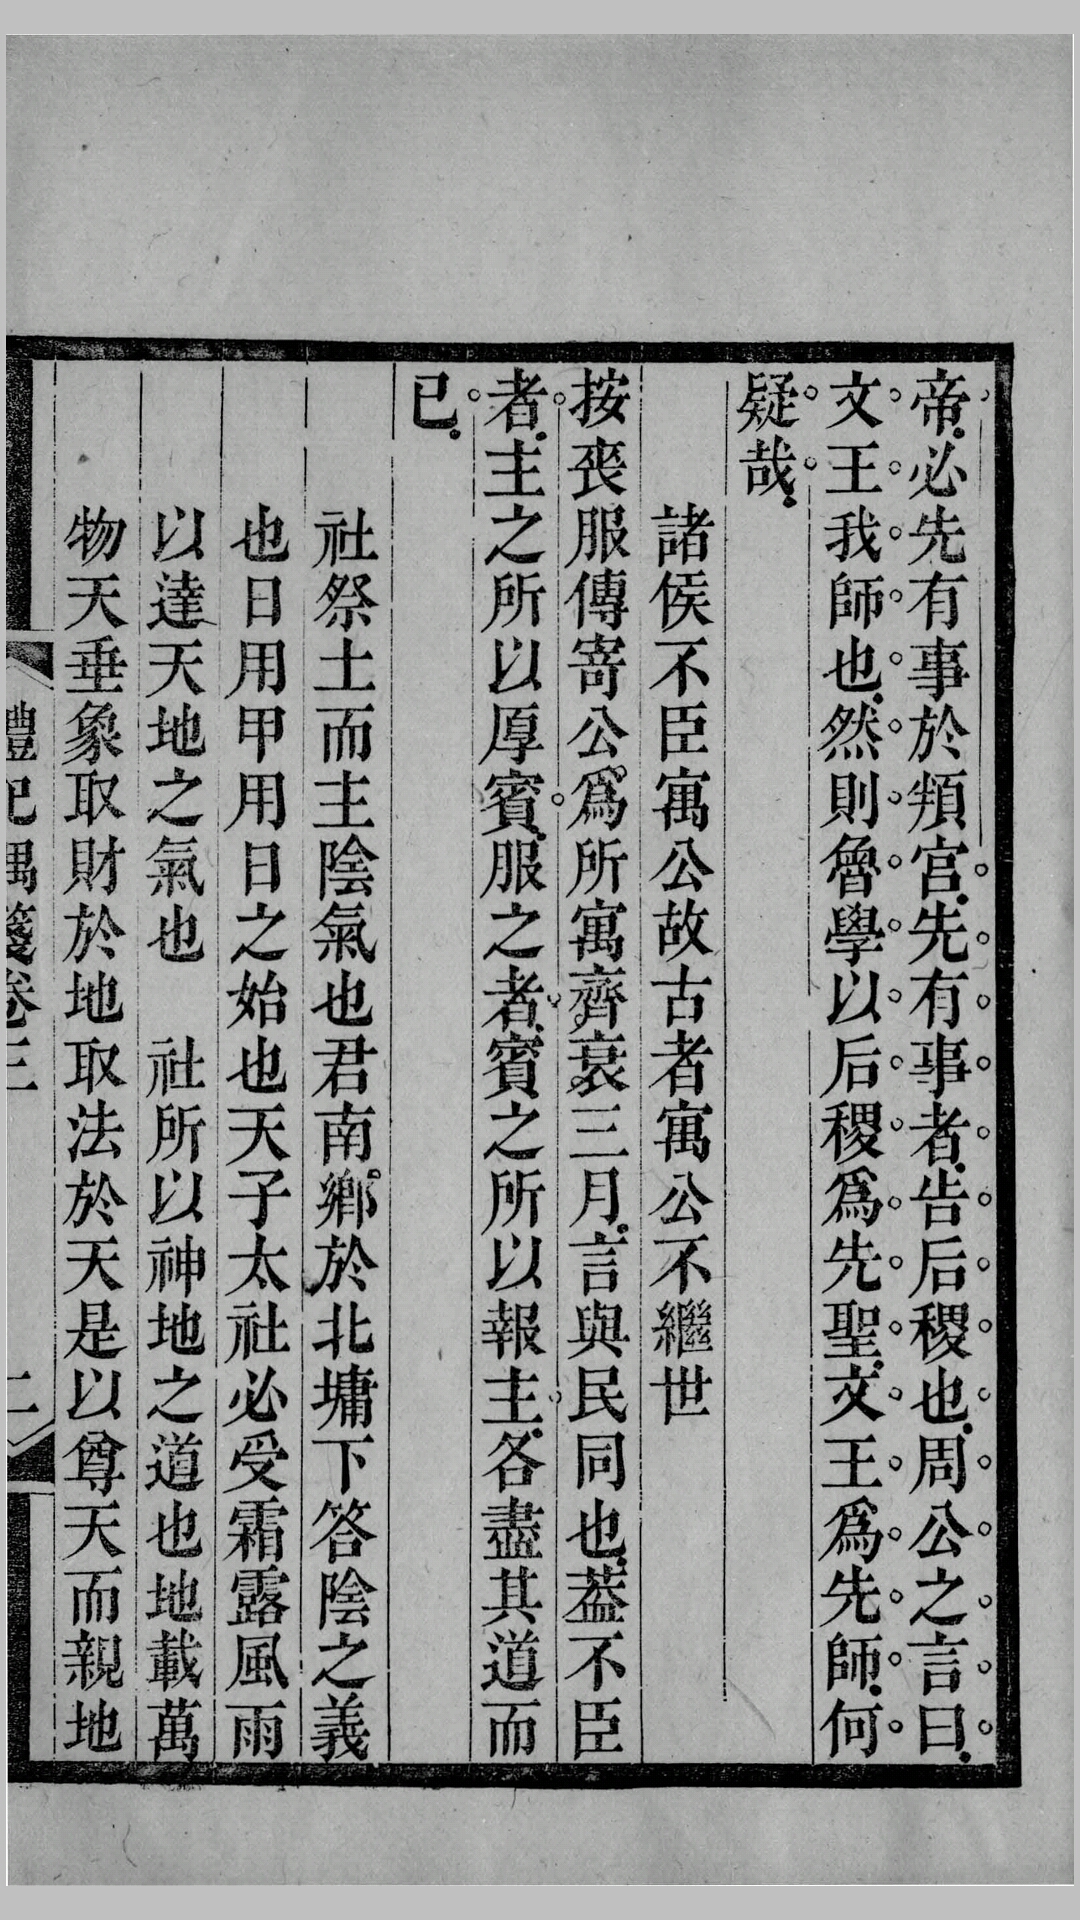 帝必先有事於頖宮先有事者告后稷也周公之言曰
文王我師也然則魯學以后稷爲先聖文王爲先師何
疑哉
諸侯不臣寓公故古者寓公不繼世
按喪服傳寄公爲所寓齊衰三月言與民同也葢不臣
者主之所以厚賓服之者賓之所以報主各盡其道而
已
社祭土而主陰氣也君南鄉於北墉下答陰之義
也日用甲用日之始也天子太社必受霜露風雨
以達天地之氣也　社所以神地之道也地載萬
物天垂象取財於地取法於天是以尊天而親地
禮記偶箋卷三　二